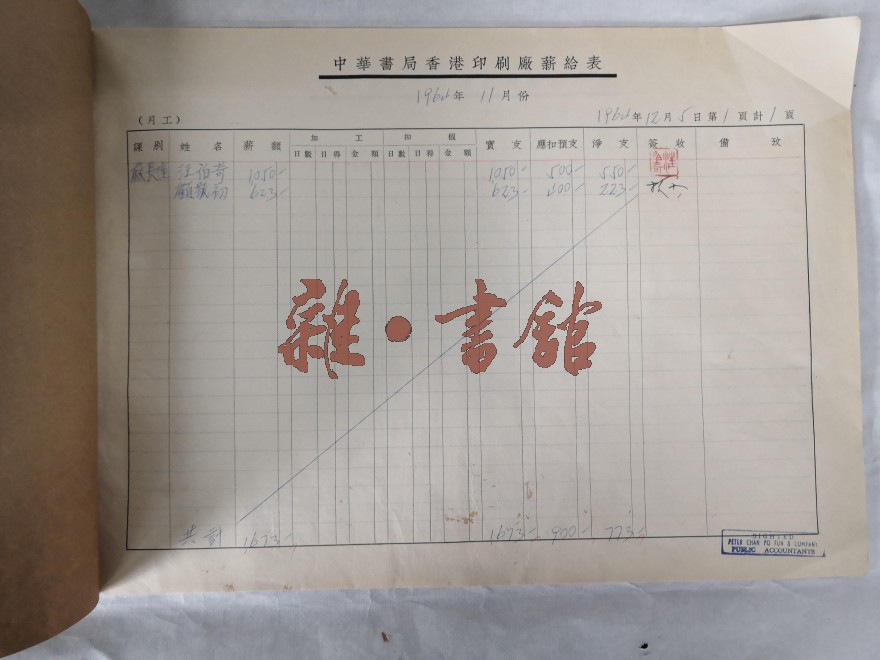 中華書局香港印刷廠薪給表
1964年 11月份
(月工)
1964年12月5日第1頁計1頁
課別 姓名 薪額 加工 扣假 實支 應扣預支 淨支 簽收 備攷
日數 日得 金額 日數 日得 金額
廠長室 汪伯奇 1050- 1050- 500- 550-
623- 623- 400- 223-
雜·書館
共計 1673- 1673- 900- 773-
SIGHTED
PETER CHAN PO FUN & COMPANY
PUBLIC ACCOUNTANTS